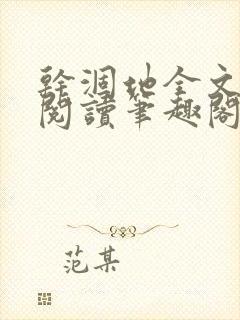 幹涸地全文
閱讀筆趣閣
范某